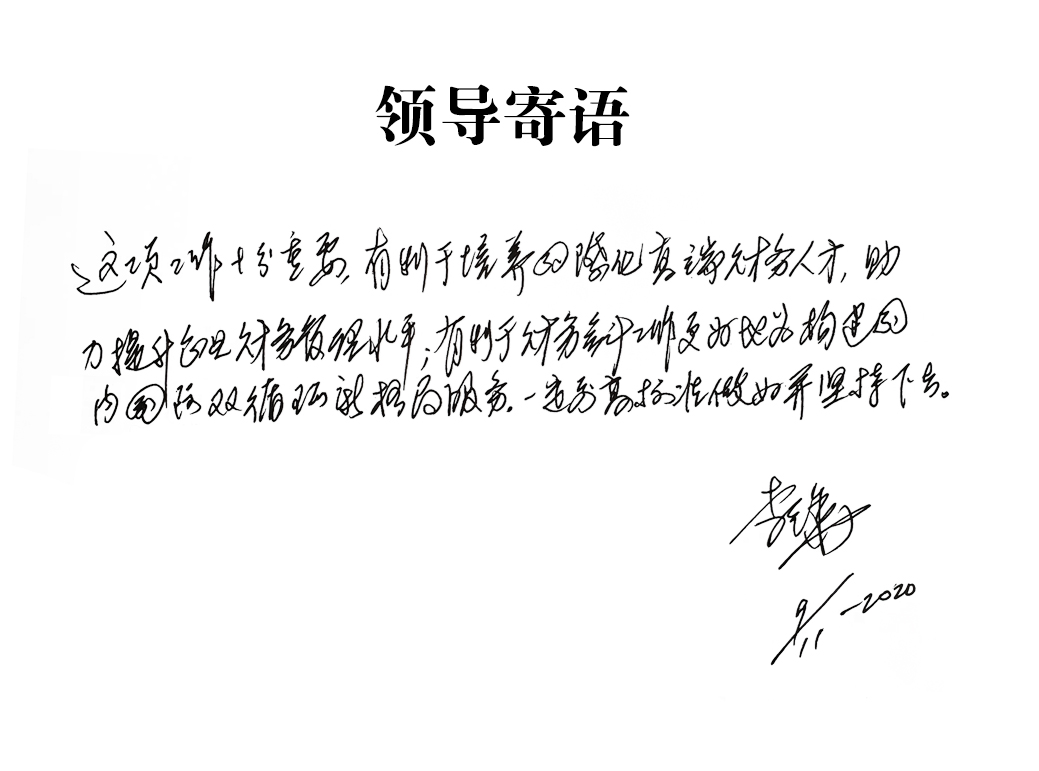 领导寄语
这项工作十分重要,有利于培养国际化高端财务人才,助
力提升企业财务管理水平;有利于财务会计工作更好地为构建国
内国际双循环新格局服务。一定要高标准做好并坚持下去。
李
9/11-2020